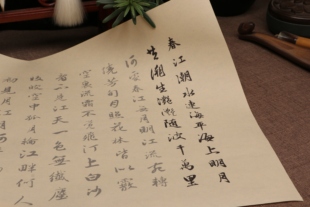 春江潮水連海平海上明月
共潮生灩灩隨波千萬里
何處春江無月明江流宛轉
繞芳甸月照花林皆似霰
空裏流霜不覺飛汀上白沙
看不見江天一色無纖塵
皎皎空中孤月輪江畔何人
初見月江月何